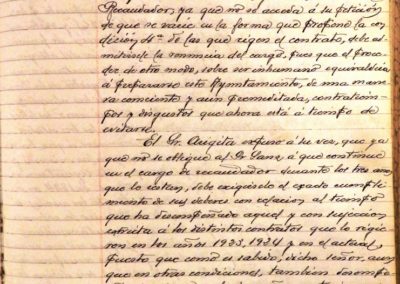 Recaudador, ya que no se acceda á su petición
de que se varie en la forma que propone la con
dición 4ª de las que rigen el contrato, debe ad
mitirsele la renuncia del cargo, pues que el proce
der de otro modo, sobre ser inhumano equivaldria
á prepararse este Ayuntamiento, de una mane
ra consciente y aun premeditada, contratiem-
pos y disgustos que ahora está á tiempo de
evitarse.
El Sr. expuso á su vez, que ya
que no se obligue al Sr. Sanz á que continue
en el cargo de recaudador durante los tres años
que le restan, debe exigirsele el exacto cumpli
miento de sus deberes con relacion al tiempo
que ha desempeñado aquel y con sujecion
estricta á los distintos contratos que lo rigie
ron en los años 1923, 1924 y en el actual
puesto que como es sabido, dicho señor, aun
que en otras condiciones, tambien desempe